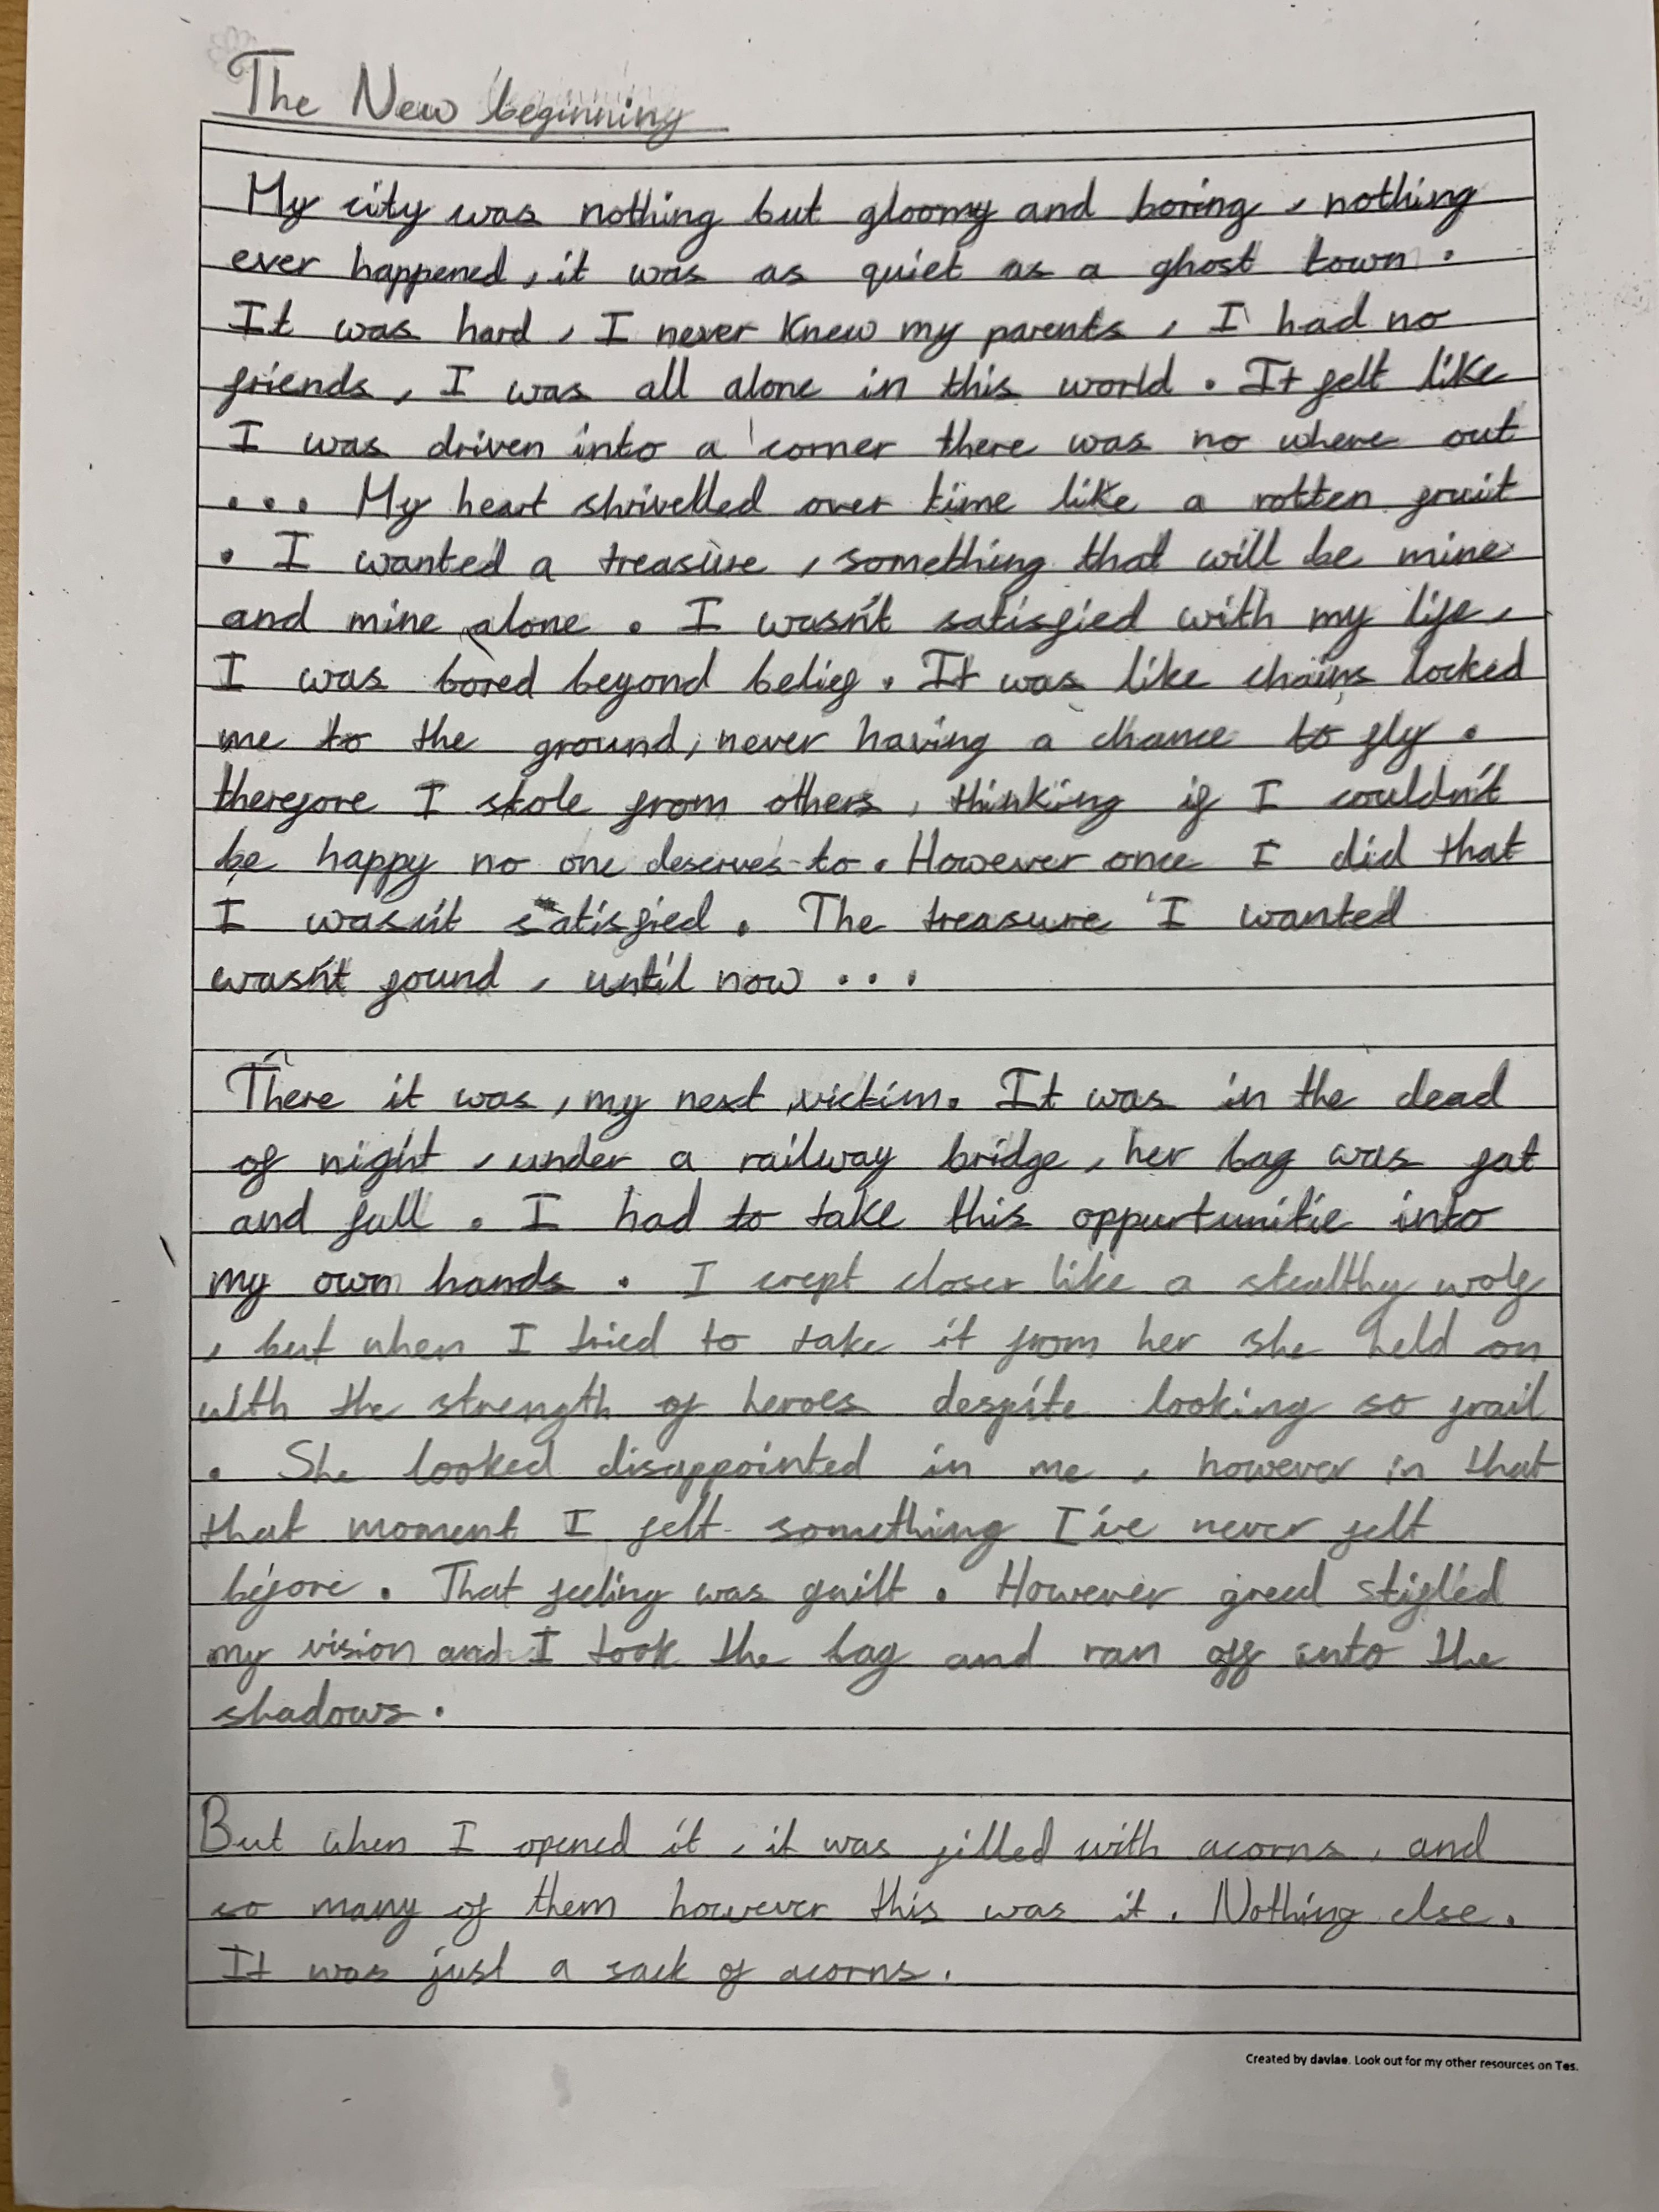 The New beginning
My city was nothing but gloomy and boring, nothing
ever happened, it was as quiet as a ghost town.
It was hard, I never knew my parents, I had no
friends, I was all alone in this world. It felt like
I was driven into a corner there was no where out
... My heart shrivelled over time like a rotten fruit
. I wanted a treasure, something that will be mine
and mine alone. I wasn't satisfied with my life,
I was bored beyond belief. It was like chains locked
me to the ground, never having a chance to fly.
therefore I stole from others, thinking if I couldn't
be happy no one deserves to. However once I did that
I wasn't satisfied. The treasure I wanted
wasn't found, until now ...
There it was, my next victim. It was in the dead
of night, under a railway bridge, her bag was fat
and full. I had to take this oppurtunitie into
my own hands. I crept closer like a stealthy wolf
, but when I tried to take it from her she held on
with the strength of heroes despite looking so frail
. She looked disappointed in me, however in that
that moment I felt something I've never felt
before. That feeling was guilt. However greed stifled
my vision and I took the bag and ran off into the
shadows.
But when I opened it, it was filled with acorns, and
so many of them however this was it. Nothing else.
It was just a sack of acorns.
Created by davlae. Look out for my other resources on Tes.